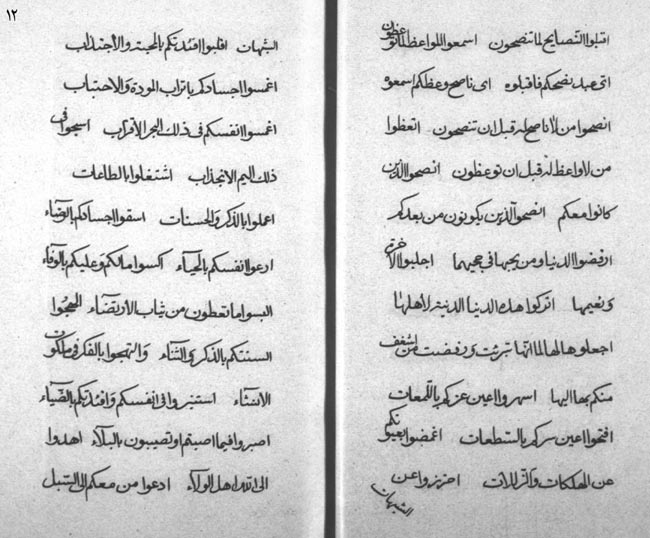 اقبلوا النصايح لما تنصحون اسمعوا المواعظ لما توعظون
انى عبد نصحكم فاقبلوه انى ناصح وعظكم اسمعوه
انصحوا من لا ناصح له قبل ان تنصحون اتعظوا
من لا واعظ له قبل ان توعظون انصحوا الذين
كانوا معكم انصحوا الذين يكونون من بعدكم
ارفضوا الدنيا ومن يحبها فى جحيمها اجلبوا الاخرة
ونعيمها اتركوا هذه الدنيا الدنية لاهلها
اجعلوها لها لما انها ورفضت من اشغف
منكم بها اليها اسهروا اعين عزكم باللمعات
افتحوا اعين سركم بالسطعات اغمضوا عيونكم
عن الهلكات والزلات احترزوا عن
الشبهات
١٢
الشبهات اقلبوا افئدتكم بالمحبة والاجتذاب
اغمسوا اجسادكم بتراب المودة والاحتباب
اغمسوا انفسكم فى ذلك البحر الاقتراب اسبحوا فى
ذلك اليم الانجذاب اشتغلوا بالطاعات
اعملوا بالذكر والحسنات اسقوا اجسادكم بالوضاء
ادعوا انفسكم بالحياء اكسوا مالكم وعليكم بالوفاء
البسوا ما تعطون من ثياب الارتضاء الهجوا
السنتكم بالذكر والثناء والتهجوا بالفكر فى ملكوت
الانشاء استنيروا فى انفسكم وافئدتكم بالضياء
اصبروا فيما اصبتم او تصيبون بالبلاء اهدوا
الى الله اهل الولاء ادعوا من معكم الى السبل